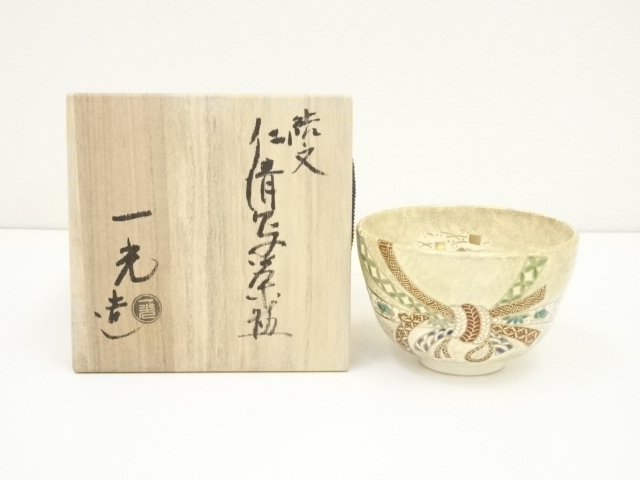 結文
仁清写茶碗
一光造